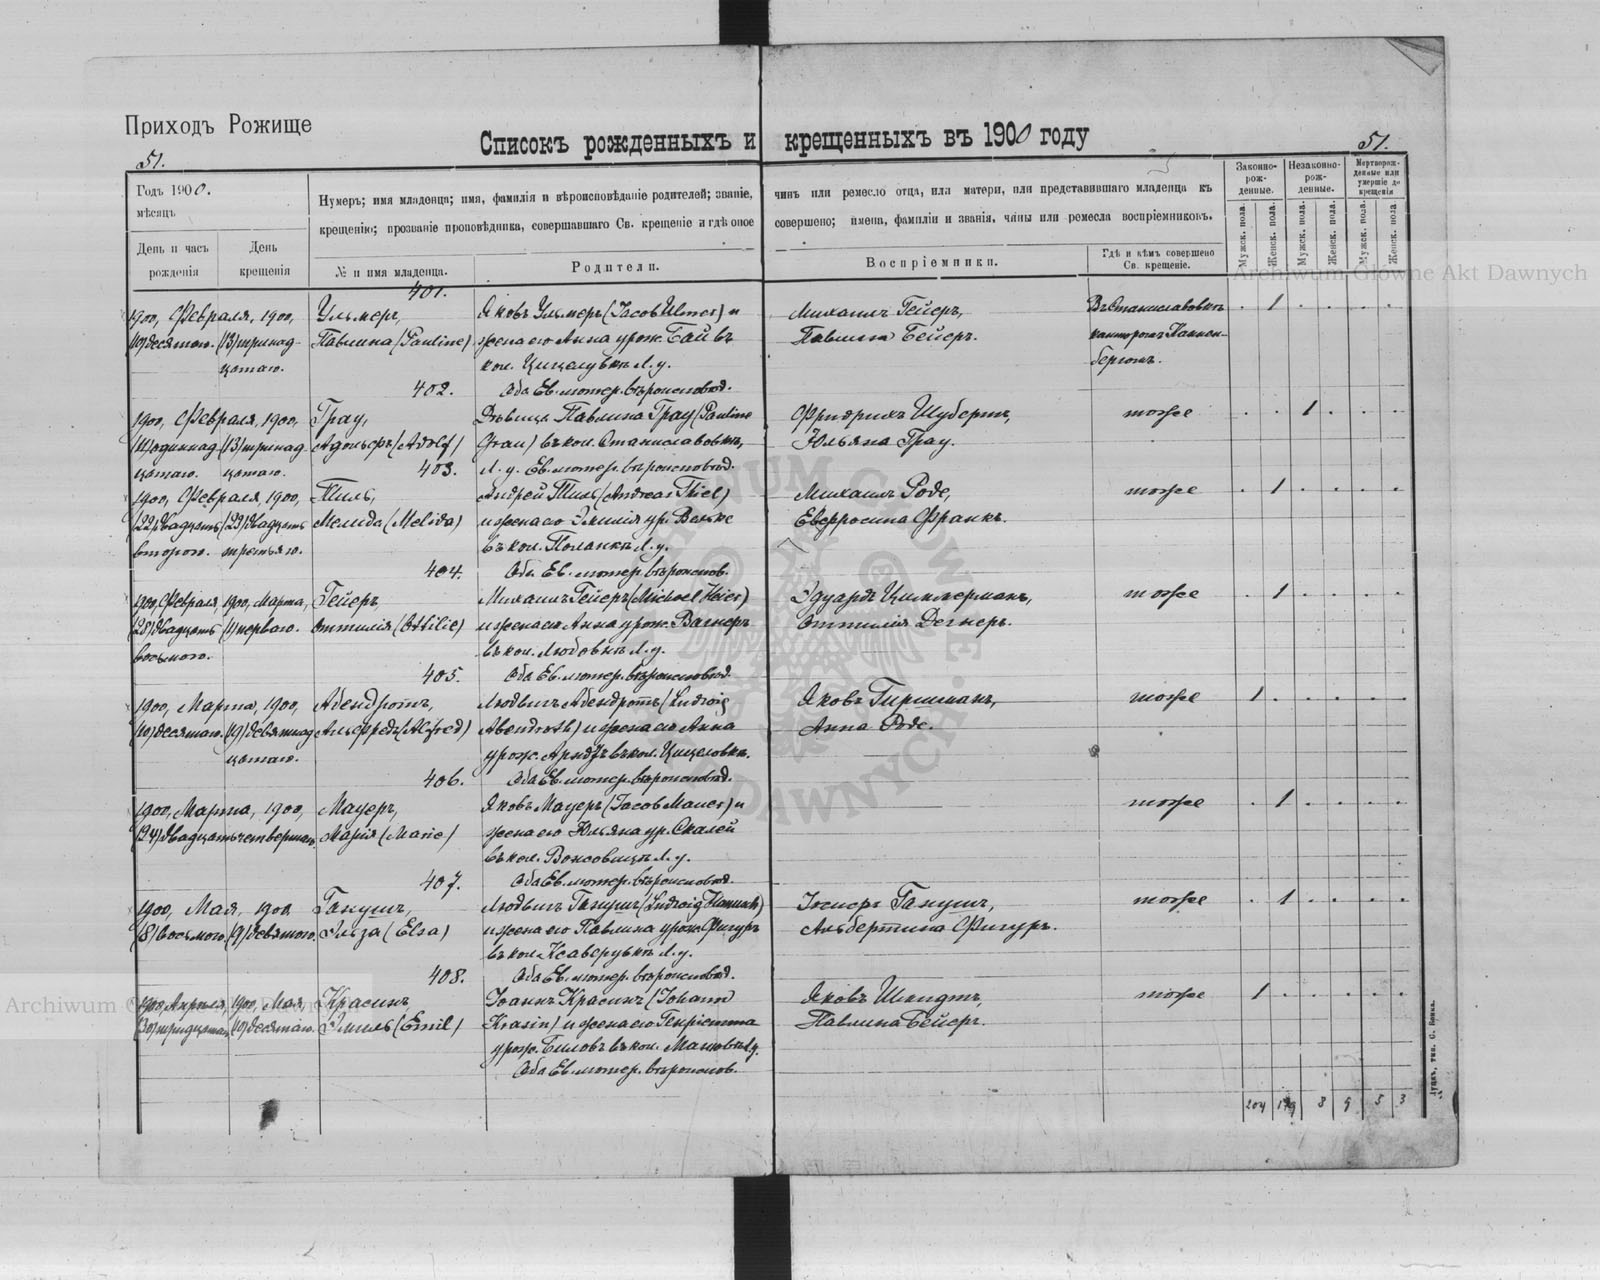 Приходъ Рожище
Списокъ рожденныхъ и крещенныхъ въ 1900 году
51.
51.
Годъ 1900.
мѣсяцъ
День и часъ рожденія
День крещенія
Нумеръ; имя младенца; имя, фамилія и вѣроисповѣданіе родителей; званіе, чинъ или ремесло отца, или матери, или представившаго младенца къ
крещенію; прозваніе проповѣдника, совершавшаго Св. крещеніе и гдѣ оное совершено; имена, фамиліи и званія, чины или ремесла воспріемниковъ.
№ и имя младенца.
Родители.
Воспріемники.
Гдѣ и кѣмъ совершено Св. крещеніе.
Законно-рож-денные.
Незаконно-рож-денные.
Мертворож-денные или умершіе до крещенія
Мужск. пола.
Женск. пола.
Мужск. пола.
Женск. пола.
Мужск. пола.
Женск. пола
401.
1900, Февраля, 1900, Ульмеръ, Яковъ Ульмеръ (Jacob Ulmer) и Михаилъ Гейеръ, Въ Станиславовкѣ . 1 . . . .
(10) десятаго. (13) тринад- Павлина (Pauline) жена его Анна урож. Бай въ Павлина Бейеръ. канторомъ Каннен-
цатаго. кол. Цицелувкѣ Л. у. бергомъ.
402. Оба Ев. лютер. вѣроисповѣд.
1900, Февраля, 1900, Грау, Дѣвица Павлина Грау (Pauline Фридрихъ Шубертъ, тоже . . 1 . . .
(11) одиннад- (13) тринад- Адольфъ (Adolf) Grau) въ кол. Станиславовкѣ, Юльяна Грау.
цатаго. цатаго. 403. Л. у. Ев. лютер. вѣроисповѣд.
1900, Февраля, 1900, Тиль, Андрей Тиль (Andreas Thiel) Михаилъ Роде, тоже . 1 . . . .
(22) двадцать (23) двадцать Мелида (Melida) и жена его Эмилія ур. Вельке Евфросина Франкъ.
второго. третьяго. въ кол. Поланкѣ Л. у.
404. Оба Ев. лютер. вѣроиспов.
1900, Февраля, 1900, Марта, Гейеръ, Михаилъ Гейеръ (Michael Heier) Эдуардъ Циммерманъ, тоже . 1 . . . .
(28) двадцать (1) перваго. Оттилія (Ottilie) и жена его Анна урож. Вагнеръ Оттилія Дегнеръ.
восьмого. въ кол. Любовкѣ Л. у.
405. Оба Ев. лютер. вѣроисповѣд.
1900, Марта, 1900, Абендротъ, Людвигъ Абендротъ (Ludwig Яковъ Гиршманъ, тоже 1 . . . . .
(10) десятаго. (19) девятнад- Альфредъ (Alfred) Abendroth) и жена его Анна Анна Роде.
цатаго. урож. Арндтъ въ кол. Цицеловкѣ.
406. Оба Ев. лютер. вѣроисповѣд.
1900, Марта, 1900, Мауеръ, Яковъ Мауеръ (Jacob Mauer) и тоже . 1 . . . .
(24) двадцать четвертаго. Марія (Marie) жена его Юльяна ур. Скалей
въ кол. Л. у.
407. Оба Ев. лютер. вѣроисповѣд.
1900, Мая, 1900 Ганушъ, Людвигъ Ганушъ (Ludwig Hanusch) Ганушъ, тоже . 1 . . . .
(8) восьмого. (9) девятого. Эльза (Elsa) и жена его Павлина урож. Фигуръ Альбертина Фигуръ.
въ кол. Ксаверувкѣ Л. у.
408. Оба Ев. лютер. вѣроисповѣд.
1900, Апрѣля, 1900, Мая, Красинъ Іоаннъ Красинъ (Johann Яковъ Шмидтъ, тоже 1 . . . . .
(30) тридцатаго. (10) десятаго. Эмиль (Emil) Krasin) и жена его Генріетта Павлина Бейеръ.
урож. Биловъ въ кол. Л. у.
Оба Ев. лютер. вѣроиспов.
204 179 8 9 5 3
Луцкъ, тип. С. Бонка.
Archiwum Główne Akt Dawnych